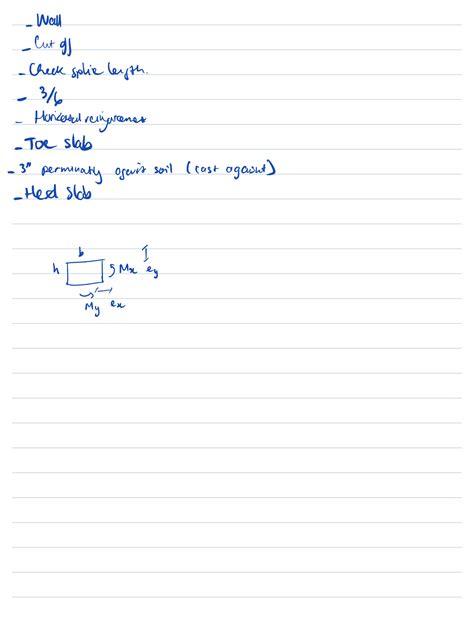 - Wall
- Cut off
- Check splice length.
- 3/6
- Horizontal reinforcement
- Toe slab
- 3" perminatly against soil (cast against)
- Heel Slab
b
h Mx ey
My ex